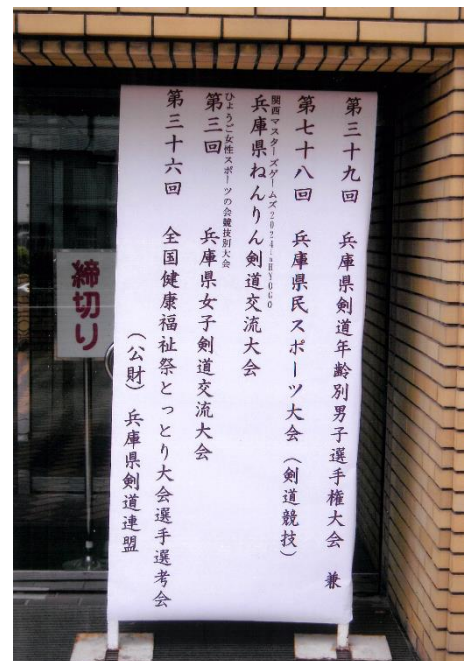 第三十九回 兵庫県剣道年齢別男子選手権大会 兼
第七十八回 兵庫県民スポーツ大会（剣道競技）
関西マスターズゲームズ2024inHYOGO
兵庫県ねんりん剣道交流大会
ひょうご女性スポーツの会競技別大会
第三回 兵庫県女子剣道交流大会
第三十六回 全国健康福祉祭とっとり大会選手選考会
（公財）兵庫県剣道連盟
締切り